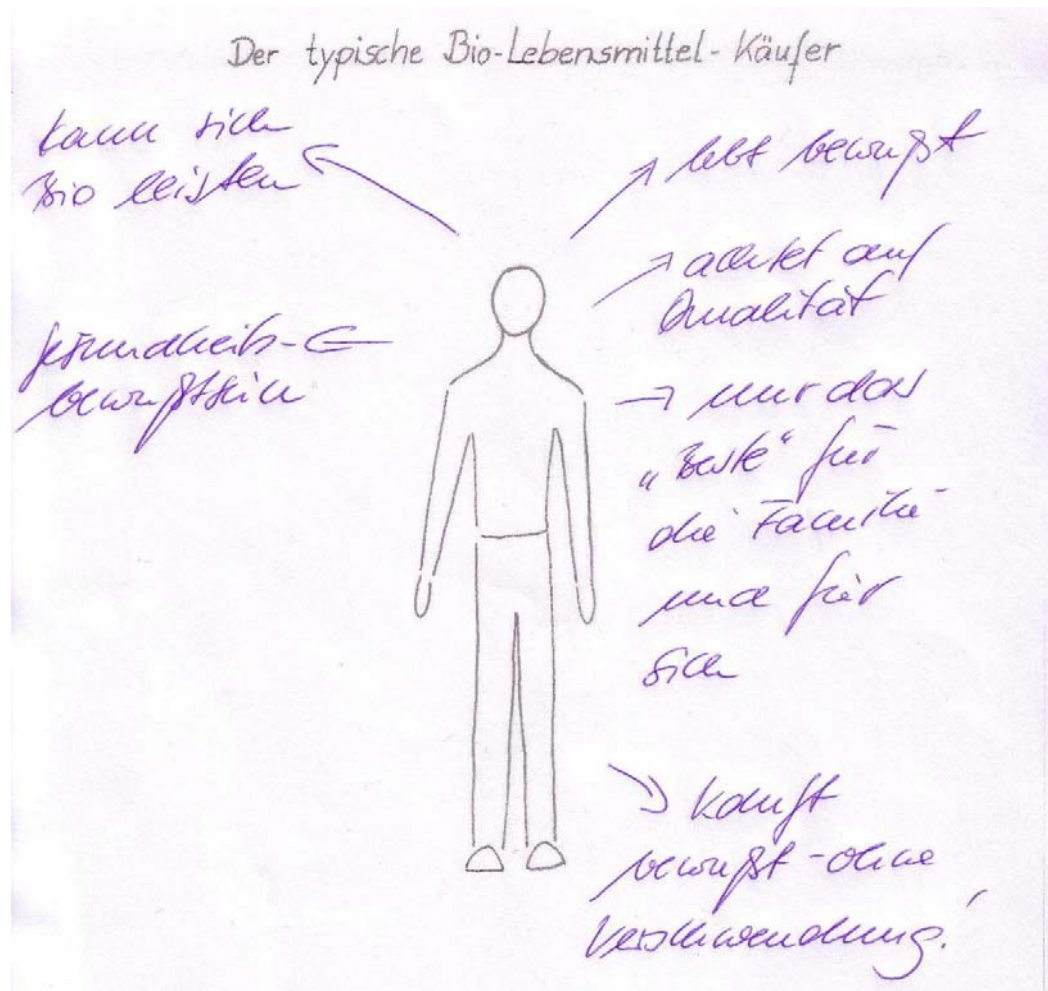 Der typische Bio-Lebensmittel-Käufer
kann sich
Bio leisten
gesundheits-
bewußtsein
lebt bewußt
achtet auf
Qualität
nur das
„Beste“ für
die Familie
und für
sich
kauft
bewußt - ohne
Verschwendung!